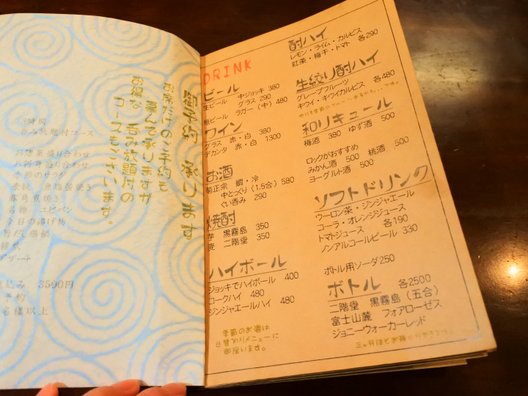 御予約 承ります
お席だけのご予約も
喜んで承りますが
お得な 呑み放題付の
コースもございます。
3500円
DRINK
ビール
生ビール 中ジョッキ 380
グラス 290
瓶ビール ラガー(中) 480
ワイン
グラス 赤・白 380
デカンタ 赤・白 1300
お酒
菊正宗 燗・冷
中とっくり(1.5合) 580
ぐい呑み 290
焼酎
芋 黒霧島 350
麦 二階堂 350
ハイボール
ジョッキでハイボール 400
コークハイ 480
ジンジャエールハイ 480
季節のお酒は
日替りメニューに
御座います。
酎ハイ
レモン・ライム・カルピス
紅茶・梅干・トマト 各290
生絞り酎ハイ
グレープフルーツ
キウイ・キウイカルピス 各480
和リキュール
梅酒 380 ゆず酒 500
ロックがおすすめ
みかん酒 500 桃酒 500
ヨーグルト酒 500
ソフトドリンク
ウーロン茶・ジンジャエール
コーラ・オレンジジュース
トマトジュース 各190
ノンアルコールビール 330
ボトル用ソーダ250
ボトル 各2500
二階堂 黒霧島(五合)
富士山麓 フォアローゼス
ジョニーウォーカーレッド